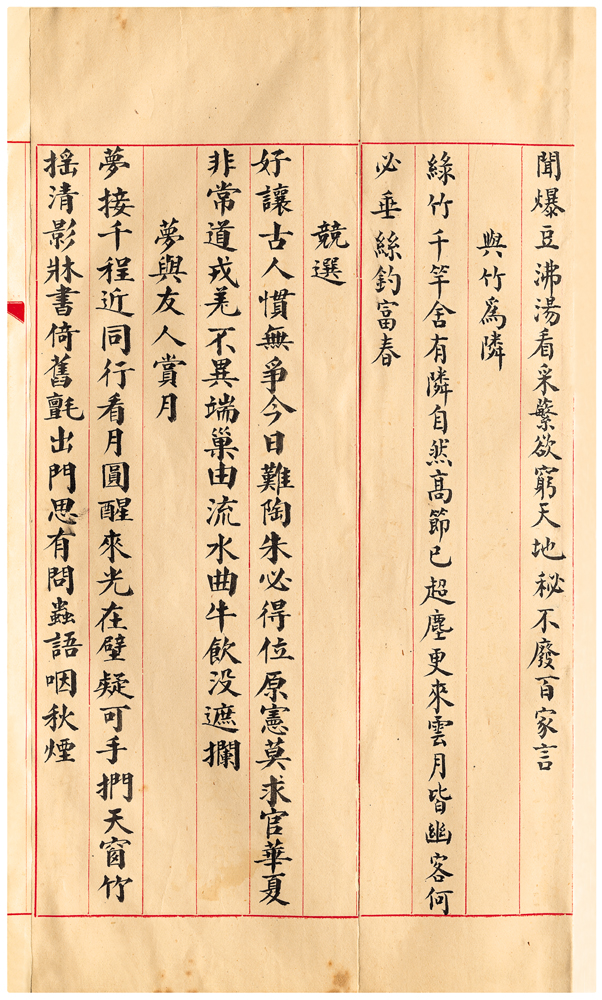 聞爆豆沸湯看采蘩欲窮天地秘不廢百家言
與竹爲隣
綠竹千竿舍有隣自然高節已超塵更來雲月皆幽客何
必垂絲釣富春
競選
好讓古人慣無爭今日難陶朱必得位原憲莫求官華夏
非常道戎羌不異端巢由流水曲牛飲没遮攔
夢與友人賞月
夢接千程近同行看月圓醒來光在壁疑可手捫天窗竹
搖清影牀書倚舊氈出門思有問蟲語咽秋煙